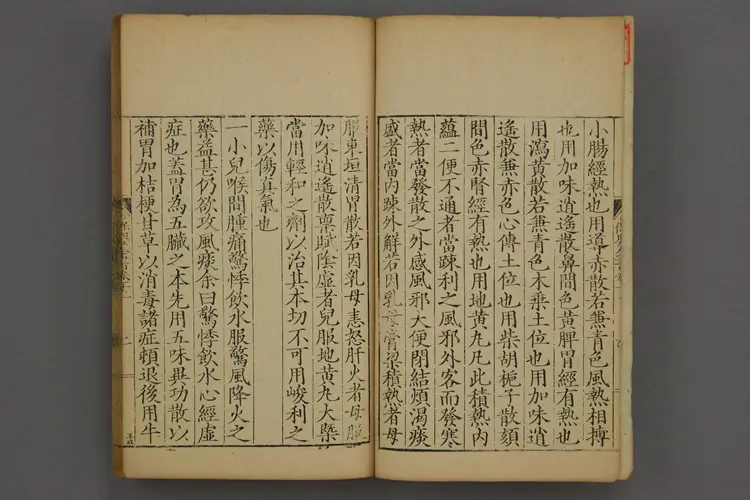 小腸經熱也用導赤散若兼青色風熱相搏
也用加味逍遙散鼻間色黃脾胃經有熱也
用瀉黃散若兼青色木乗土位也用加味逍
遙散兼赤色心傳土位也用柴胡梔子散頦
間色赤腎經有熱也用地黃丸凡此積熱內
蘊二便不通者當疎利之風邪外客而發寒
熱者當發散之外感風邪大便閉結煩渴痰
盛者當內疎外解若因乳母膏粱積熱者母
服東垣清胃散若因乳母恚怒肝火者母服
加味逍遙散禀賦陰虛者兒服地黃丸大槩
當用輕和之劑以治其本切不可用峻利之
藥以傷真氣也
一小兒喉間腫痛驚悸飲水服驚風降火之
藥益甚仍欲攻風痰余曰驚悸飲水心經虛
症也蓋胃為五臟之本先用五味異功散以
補胃加桔梗甘草以消毒諸症頓退後用牛
二